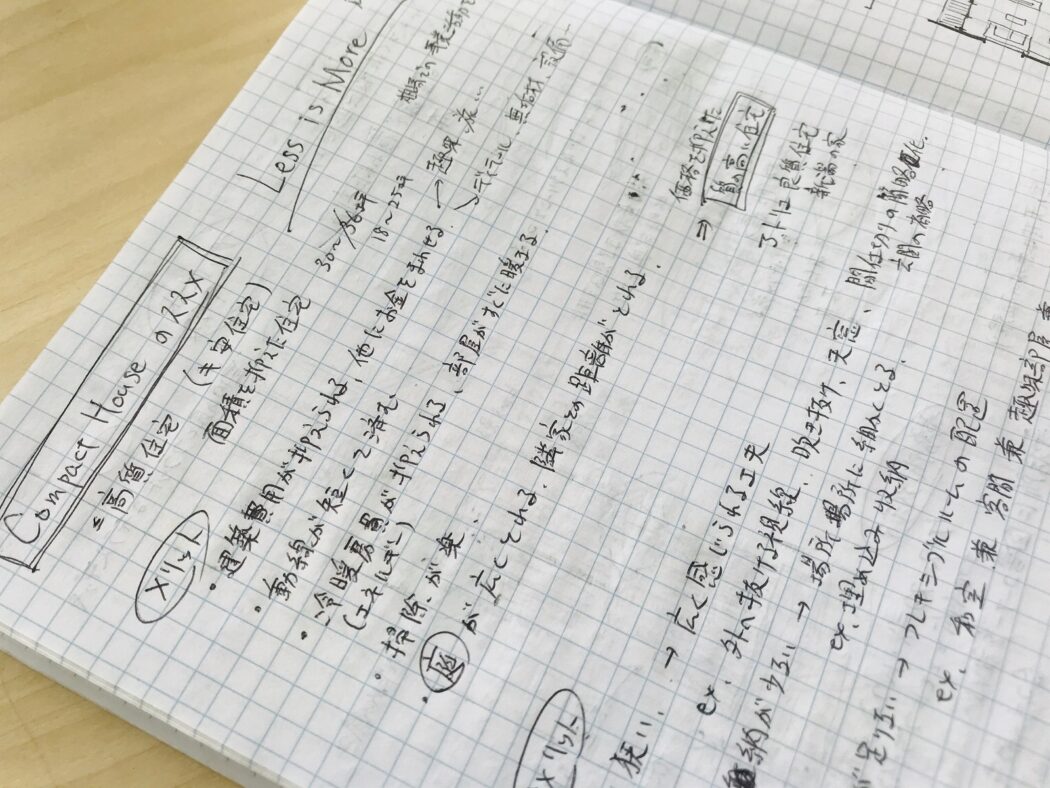 Less is More
Compact House のススメ
= 高質住宅 (≠ 安住宅)
面積を抑えた住宅
30〜36坪
18〜25坪
メリット
・建築費用が抑えられる、他にお金をまわせる
→ 趣味、旅...
ディテール、無垢材、設備
・動線が短くて済む
・冷暖房費が抑えられる、部屋がすぐに暖まる
(エネルギー)
・掃除が楽
・庭が広くとれる、隣家との距離がとれる
⇒ 価格を抑えた
質の高い住宅
良質住宅
新潟の家
メリット
狭い、→ 広く感じられる工夫
ex. 外へ抜ける視線、吹き抜け、天窓、間仕切りの簡略化
玄関の省略
納が少ない → 場所場所に細かくとる
ex. 埋め込み収納
が足りない → フレキシブルルームの配置
ex. 和室 兼 客間 兼 趣味部屋 兼